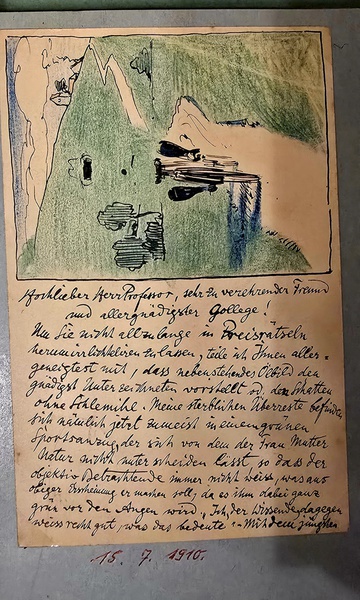 Hochlieber Herr Professor, sehr zu verehrender Freund
und allergnädigster Gollege!
Um Sie nicht allzulange in Preisrätseln
herumirrlichtelieren zu lassen, teile ich Ihnen aller-
geneigtest mit, dass nebenstehendes Ölbild den
gnädigst Unterzeichneten vorstellt od. den Schatten
ohne Schlemihl. Meine sterblichen Überreste befinden
sich natürlich jetzt zumeist in meinem grünen
Sportsanzug, der sich von dem der Frau Mutter
Natur nicht unterscheiden lässt, so dass der
objektiv Betrachtende immer nicht weiss, was aus
obiger Erscheinung er machen soll, da es ihm dabei ganz
grün vor den Augen wird. Ich, der Wissende, dagegen
weiss recht gut, was das bedeute. Mit dem jüngsten
15. 7. 1910.